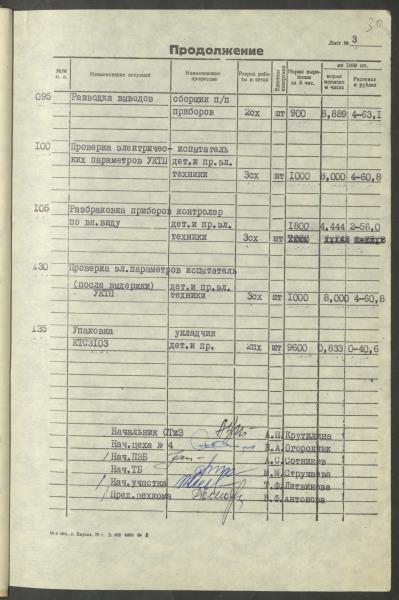 30
Лист № 3
Продолжение
№№ п. п. Наименование операций Наименование профессии Разряд работы и сетка Единицы измерения Норма выработки за 8 час. на 1000 шт.
норма времени в часах Расценка в рублях
095 Разводка выводов сборщик п/п
приборов 2сх шт 900 8,889 4-63,1
100 Проверка электричес- испытатель
ких параметров УКТП дет.и пр.эл.
техники 3сх шт 1000 8,000 4-60,8
105 Разбраковка приборов контролер
по вн.виду дет.и пр.эл. 1800 4.444 2-56,0
техники 3сх шт
130 Проверка эл.параметров испытатель
(после выдержки) дет.и пр.эл.
УКТП техники 3сх шт 1000 8,000 4-60,8
135 Упаковка укладчик
КТС3103 дет.и пр. 2пх шт 9600 0,833 0-40,6
Начальник СТиЗ А.П.Крутилина
Нач.цеха № 4 Н.А.Огорончик
Нач.ПЭБ А.С.Сотников
Нач.ТБ М.М.Стручаева
Нач.участка Т.Ф.Литвинова
Пред.цехкома В.Ф.Антонова